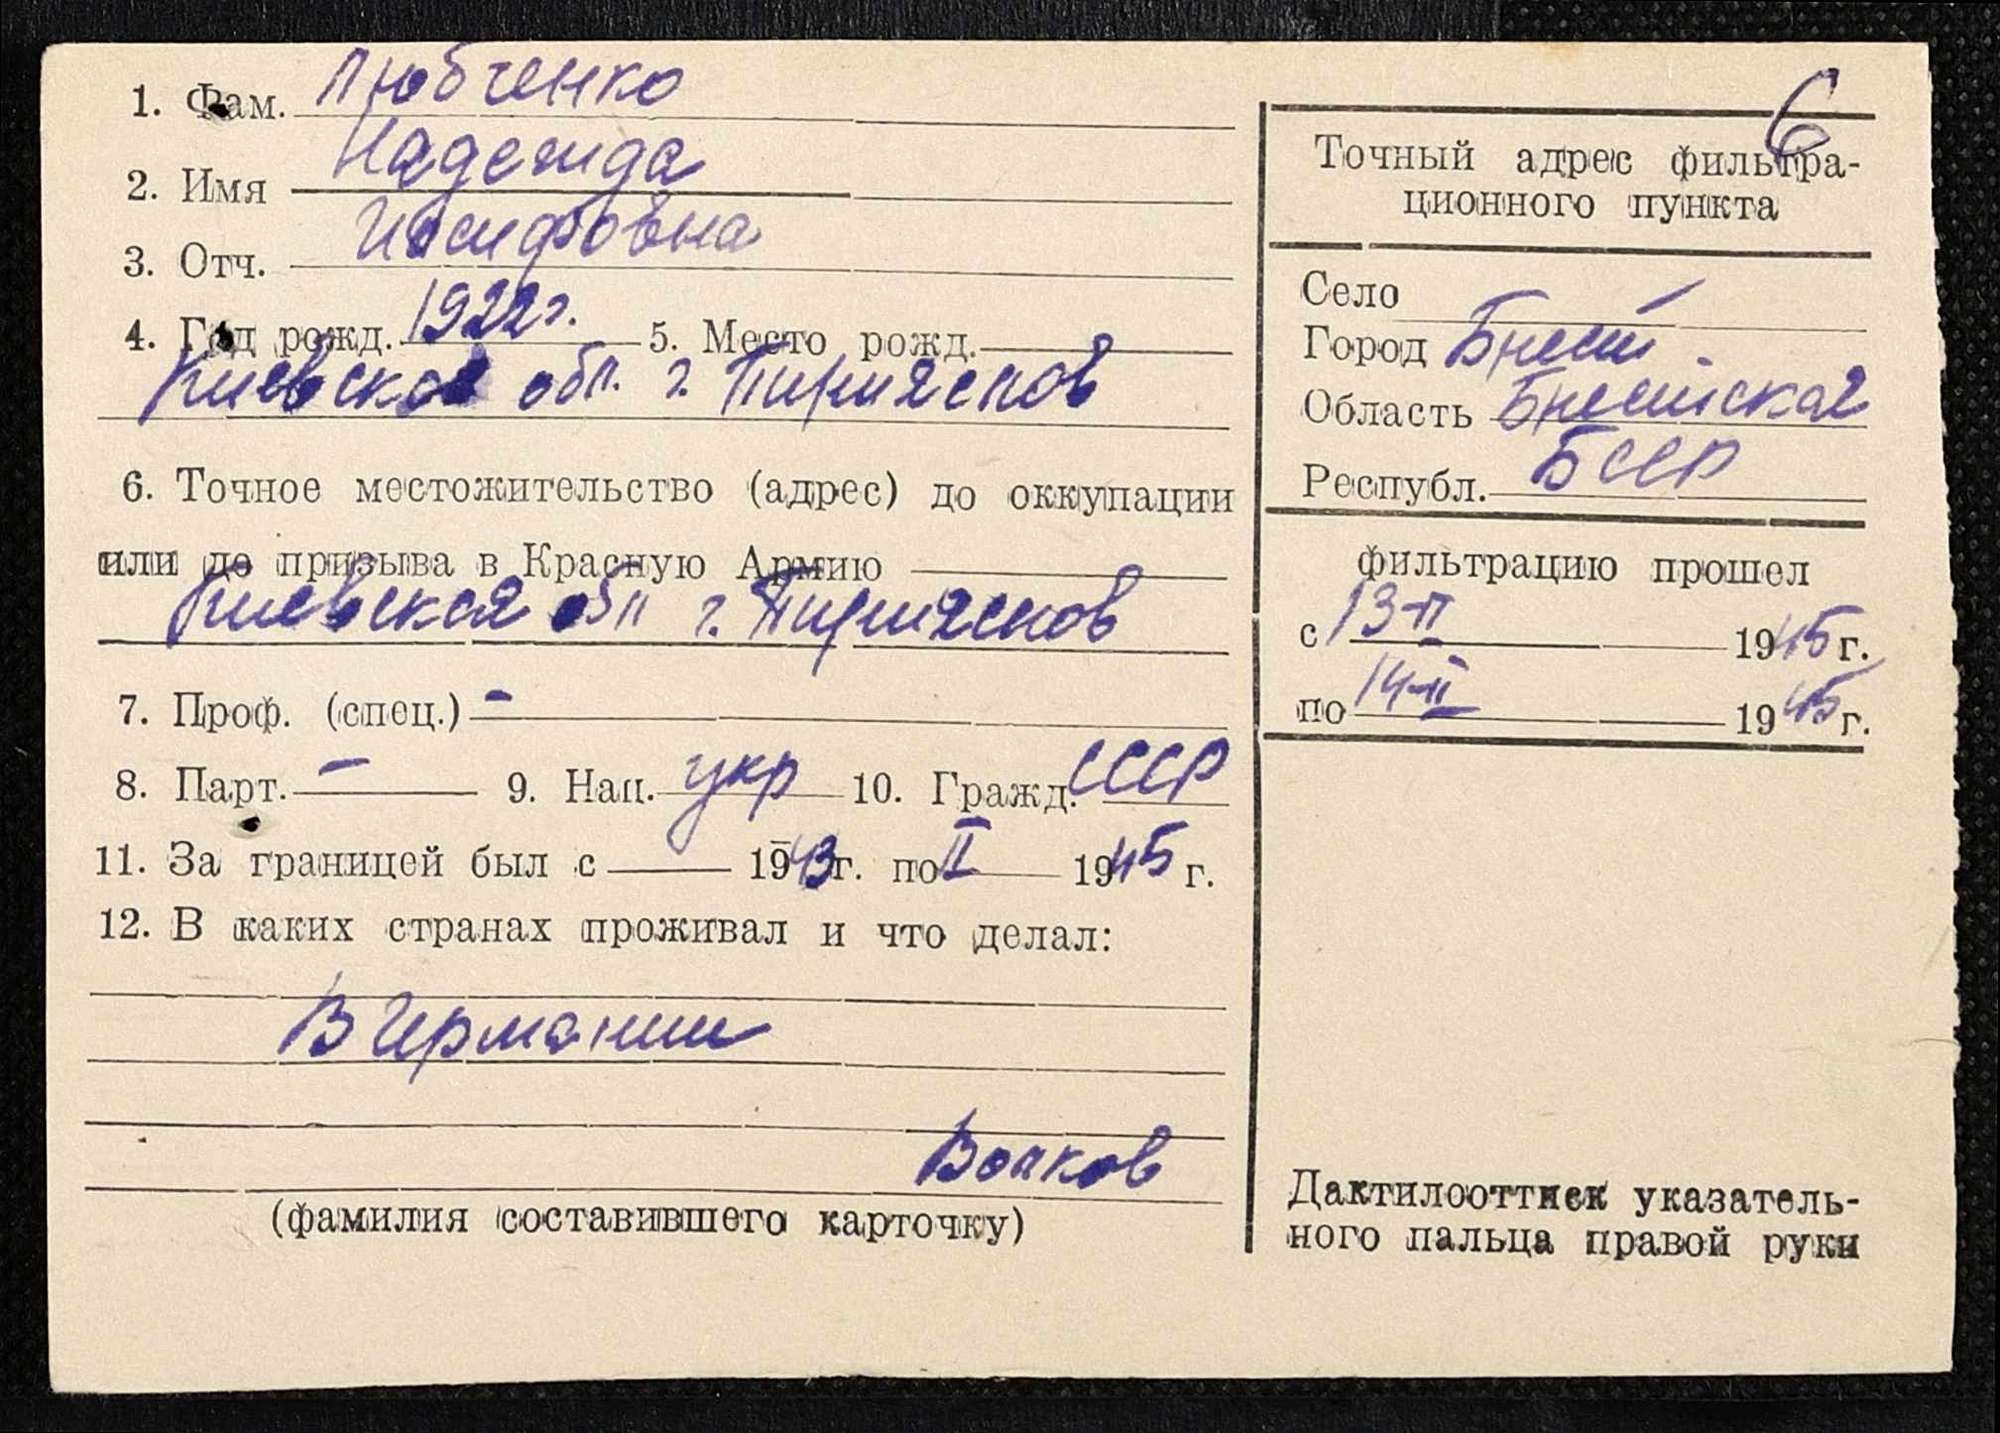 1. Фам. Любченко
2. Имя Надежда
3. Отч. Иосифовна
4. Год рожд. 1922г. 5. Место рожд.
Киевская обл. г.
6. Точное местожительство (адрес) до оккупации
или до призыва в Красную Армию
Киевская обл г.
7. Проф. (спец.) –
8. Парт. – 9. Нац. укр 10. Гражд. СССР
11. За границей был с 1943г. по II 1945г.
12. В каких странах проживал и что делал:
В Германии
Волков
(фамилия составившего карточку)
6
Точный адрес фильтра-
ционного пункта
Село –
Город Брест.
Область Брестская
Республ. БССР
фильтрацию прошел
с 13-II 1945г.
по 14-II 1945г.
Дактилооттиск указатель-
ного пальца правой руки